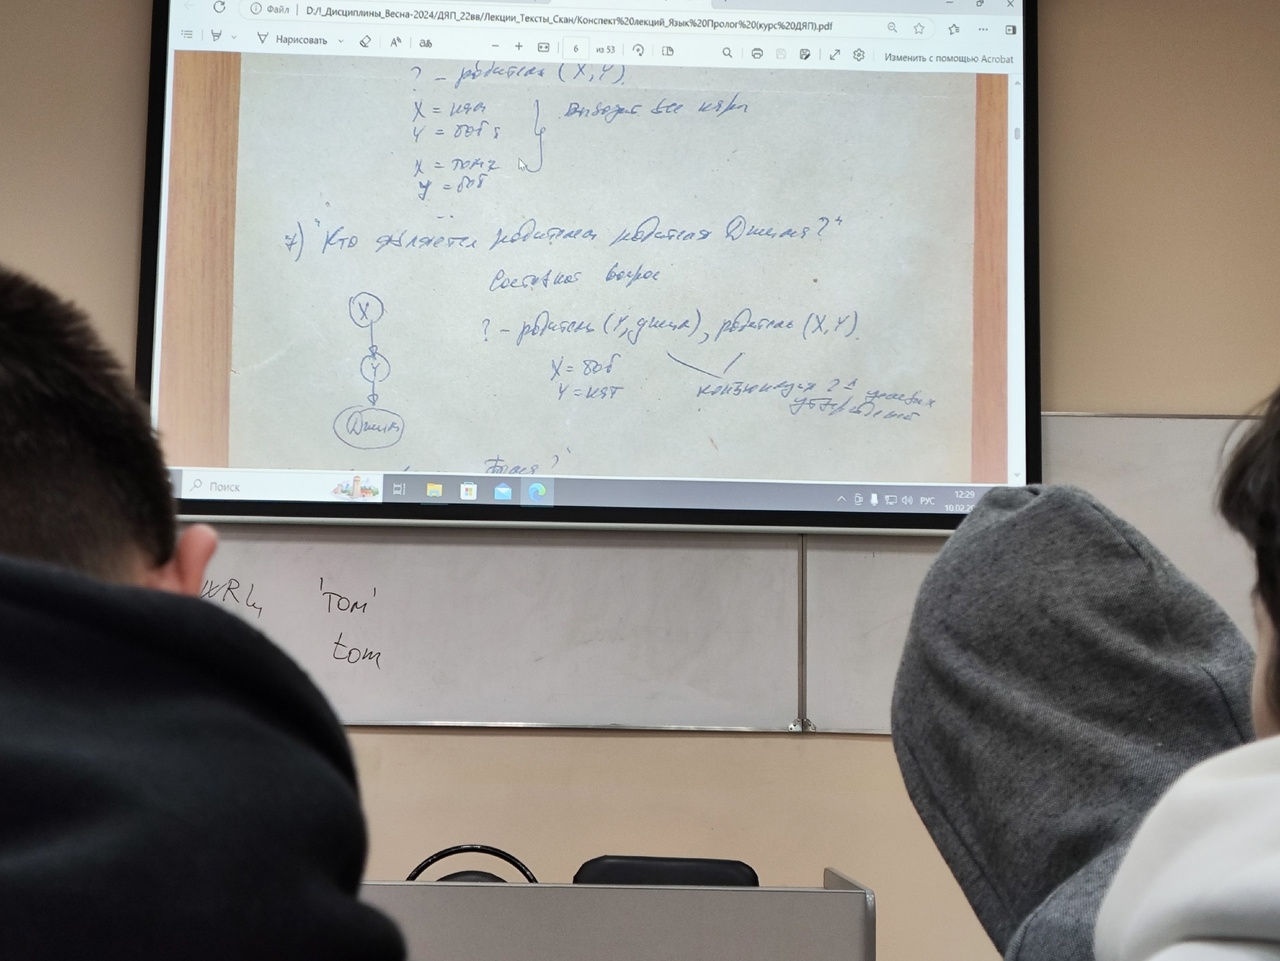 Файл D:/!_Дисциплины_Весна-2024/ДЯП_22вв/Лекции_Тексты_Скан/Конспект%20лекций_Язык%20Пролог%20(курс%20ДЯП).pdf
Нарисовать
6 из 53
Изменить с помощью Acrobat
? - родитель (X, Y).
X =
Y = боб
X = том
Y = боб
7) "Кто является родителем родителя Джима?"
Составной вопрос
X
? - родитель (Y, джим), родитель (X, Y).
Y
X = боб
Y = пэт
конъюнкция 2-х
утверждений
Джим
Поиск
РУС
12:29
'Tom'
tom